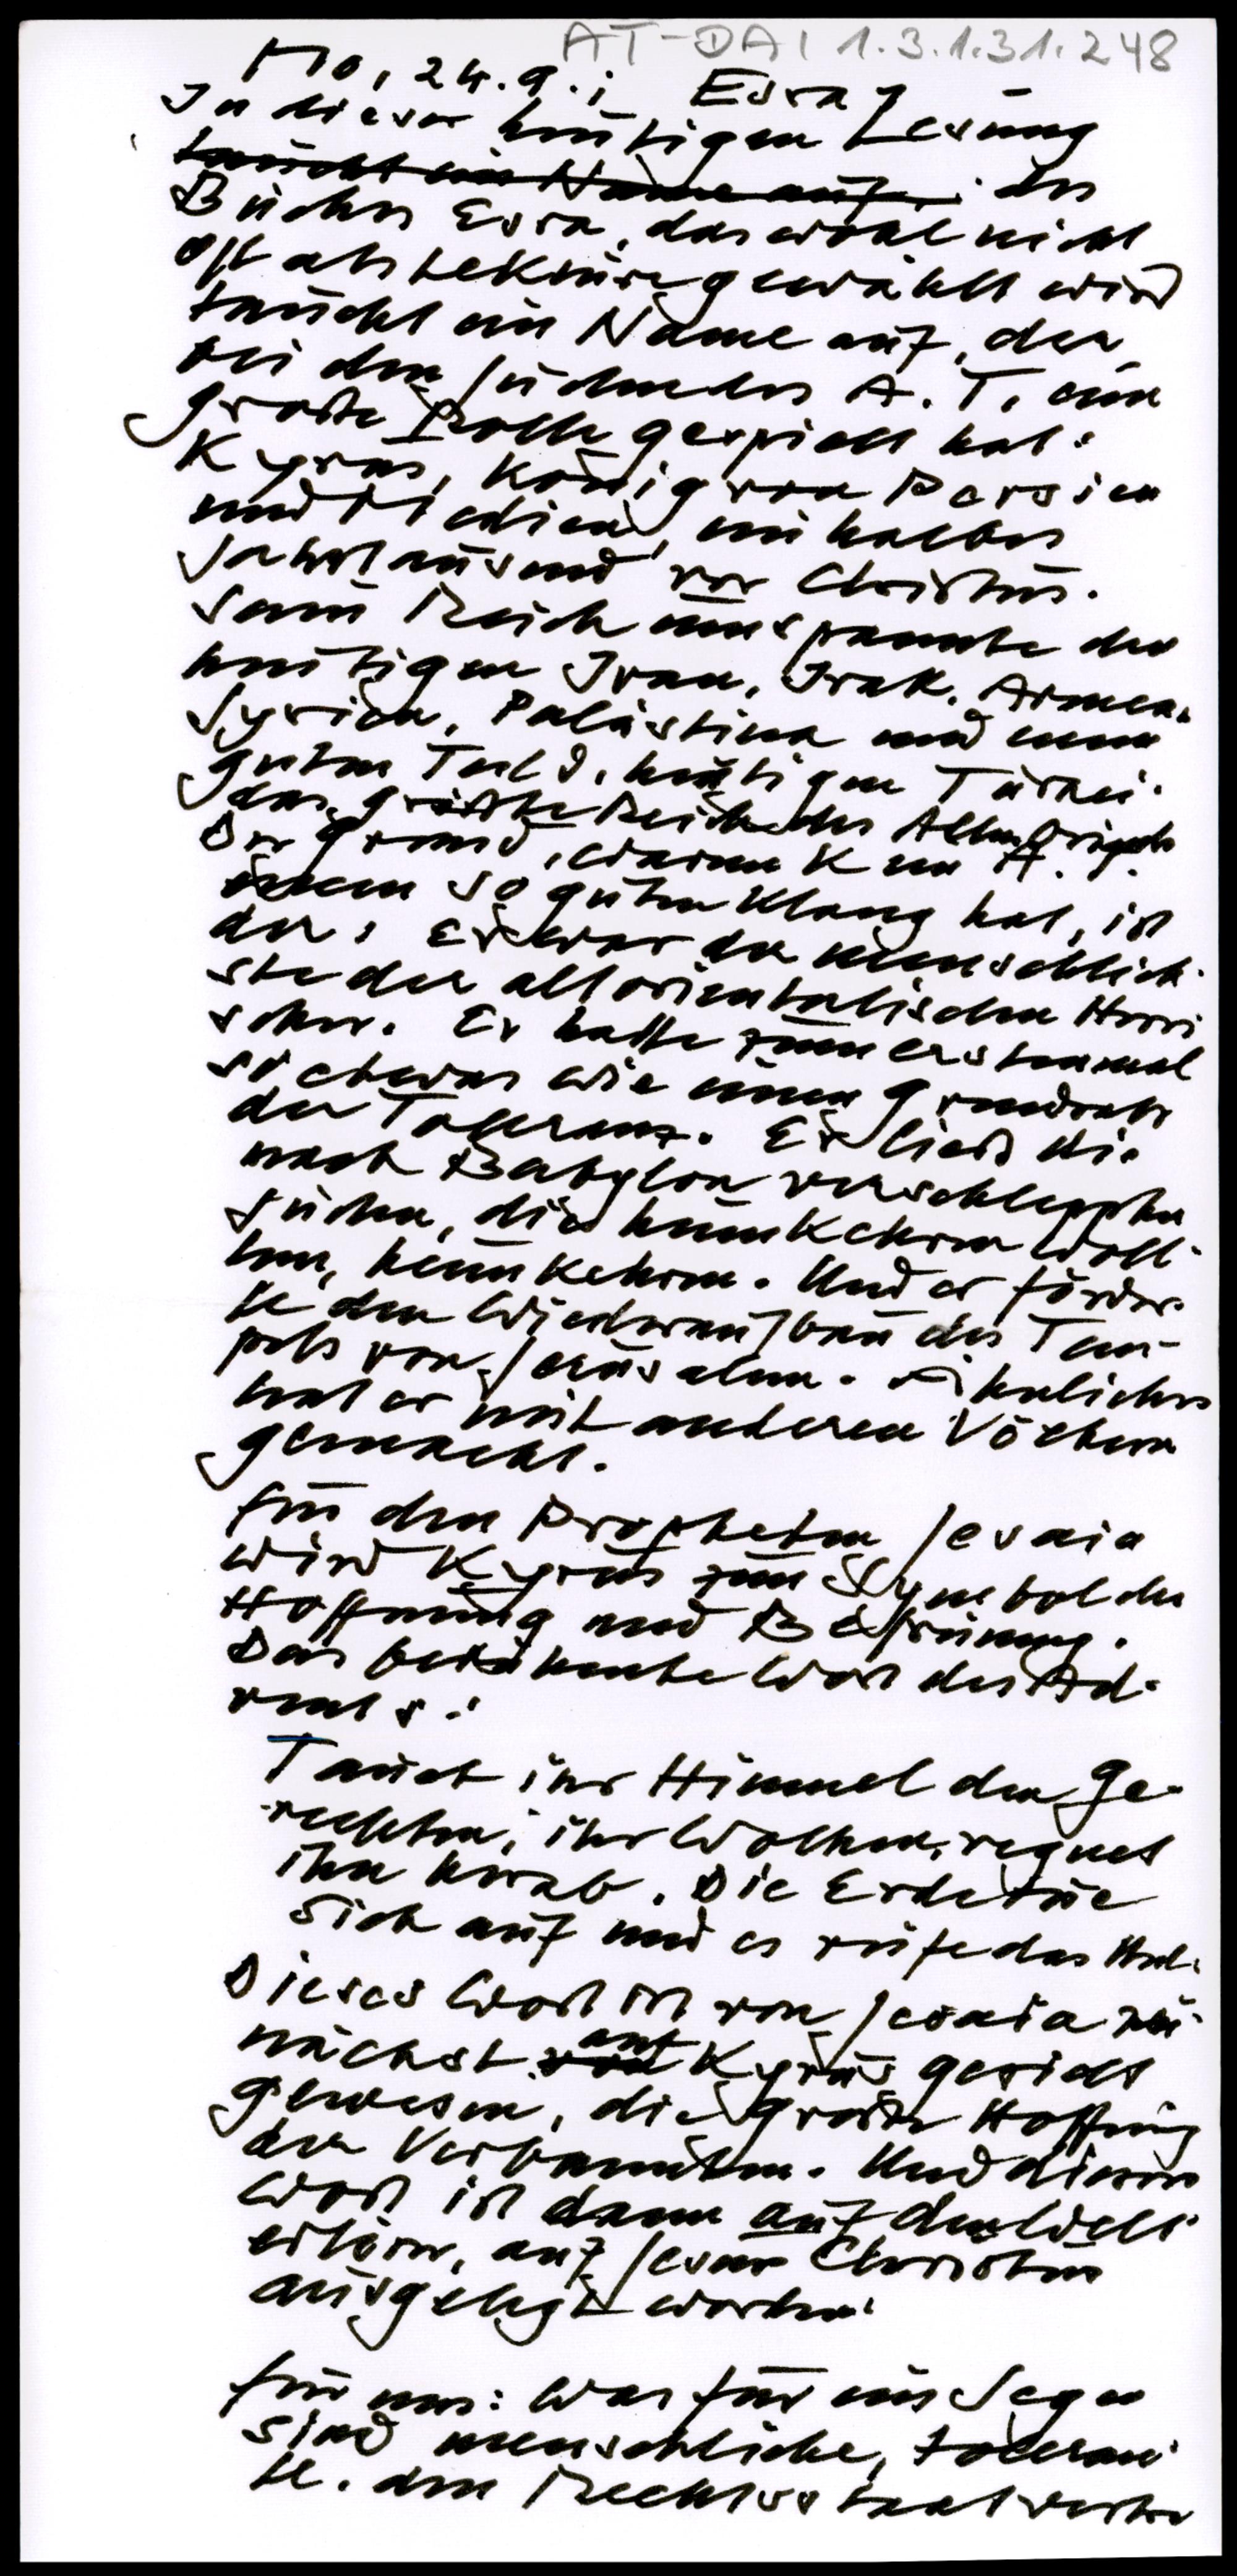 AT-DAI 1.3.1.31.248
Mo, 24.9.; Esra 1
In dieser heutigen Lesung
taucht ein Name auf. des
Buches Esra, das wohl nicht
oft als Lektüre gewählt wird
taucht ein Name auf, der
bei den Juden des A. T. eine
große Rolle gespielt hat:
Kyrus, König von Persien
und Medien, ein halbes
Jahrtausend vor Christus.
Sein Reich umspannte den
heutigen Iran, Irak, Armen.
Syrien, Palästina und einen
guten Teil d. heutigen Türkei.
das größte Reich des Alten Orients
Der Grund, warum K im A. T.
einen so guten Klang hat, ist
der: Er war der menschlich-
ste der altorientalischen Herr-
scher. Er hatte zum erstenmal
so etwas wie einen Grundsatz
der Toleranz. Er ließ die
nach Babylon verschleppten
Juden, die heimkehren woll-
ten, heimkehren. Und er förder-
te den Wiederaufbau des Tem-
pels von Jerusalem. Ähnliches
hat er mit anderen Völkern
gemacht.
Für den Propheten Jesaia
wird Kyrus zum Symbol der
Hoffnung und Befreiung.
Das bekannte Wort des Ad-
vents:
Tauet ihr Himmel den Ge-
rechten, ihr Wolken, regnet
ihn herab. Die Erde tue
sich auf und es reife das Heil.
Dieses Wort ist von Jesaia zu-
nächst von auf Kyrus gesagt
gewesen, die große Hoffnung
der Verbannten. Und dieses
Wort ist dann auf den Welt-
erlöser, auf Jesus Christus
ausgelegt worden.
Für uns: Was für ein Segen
sind menschliche, toleran-
te. den Rechtsstaat